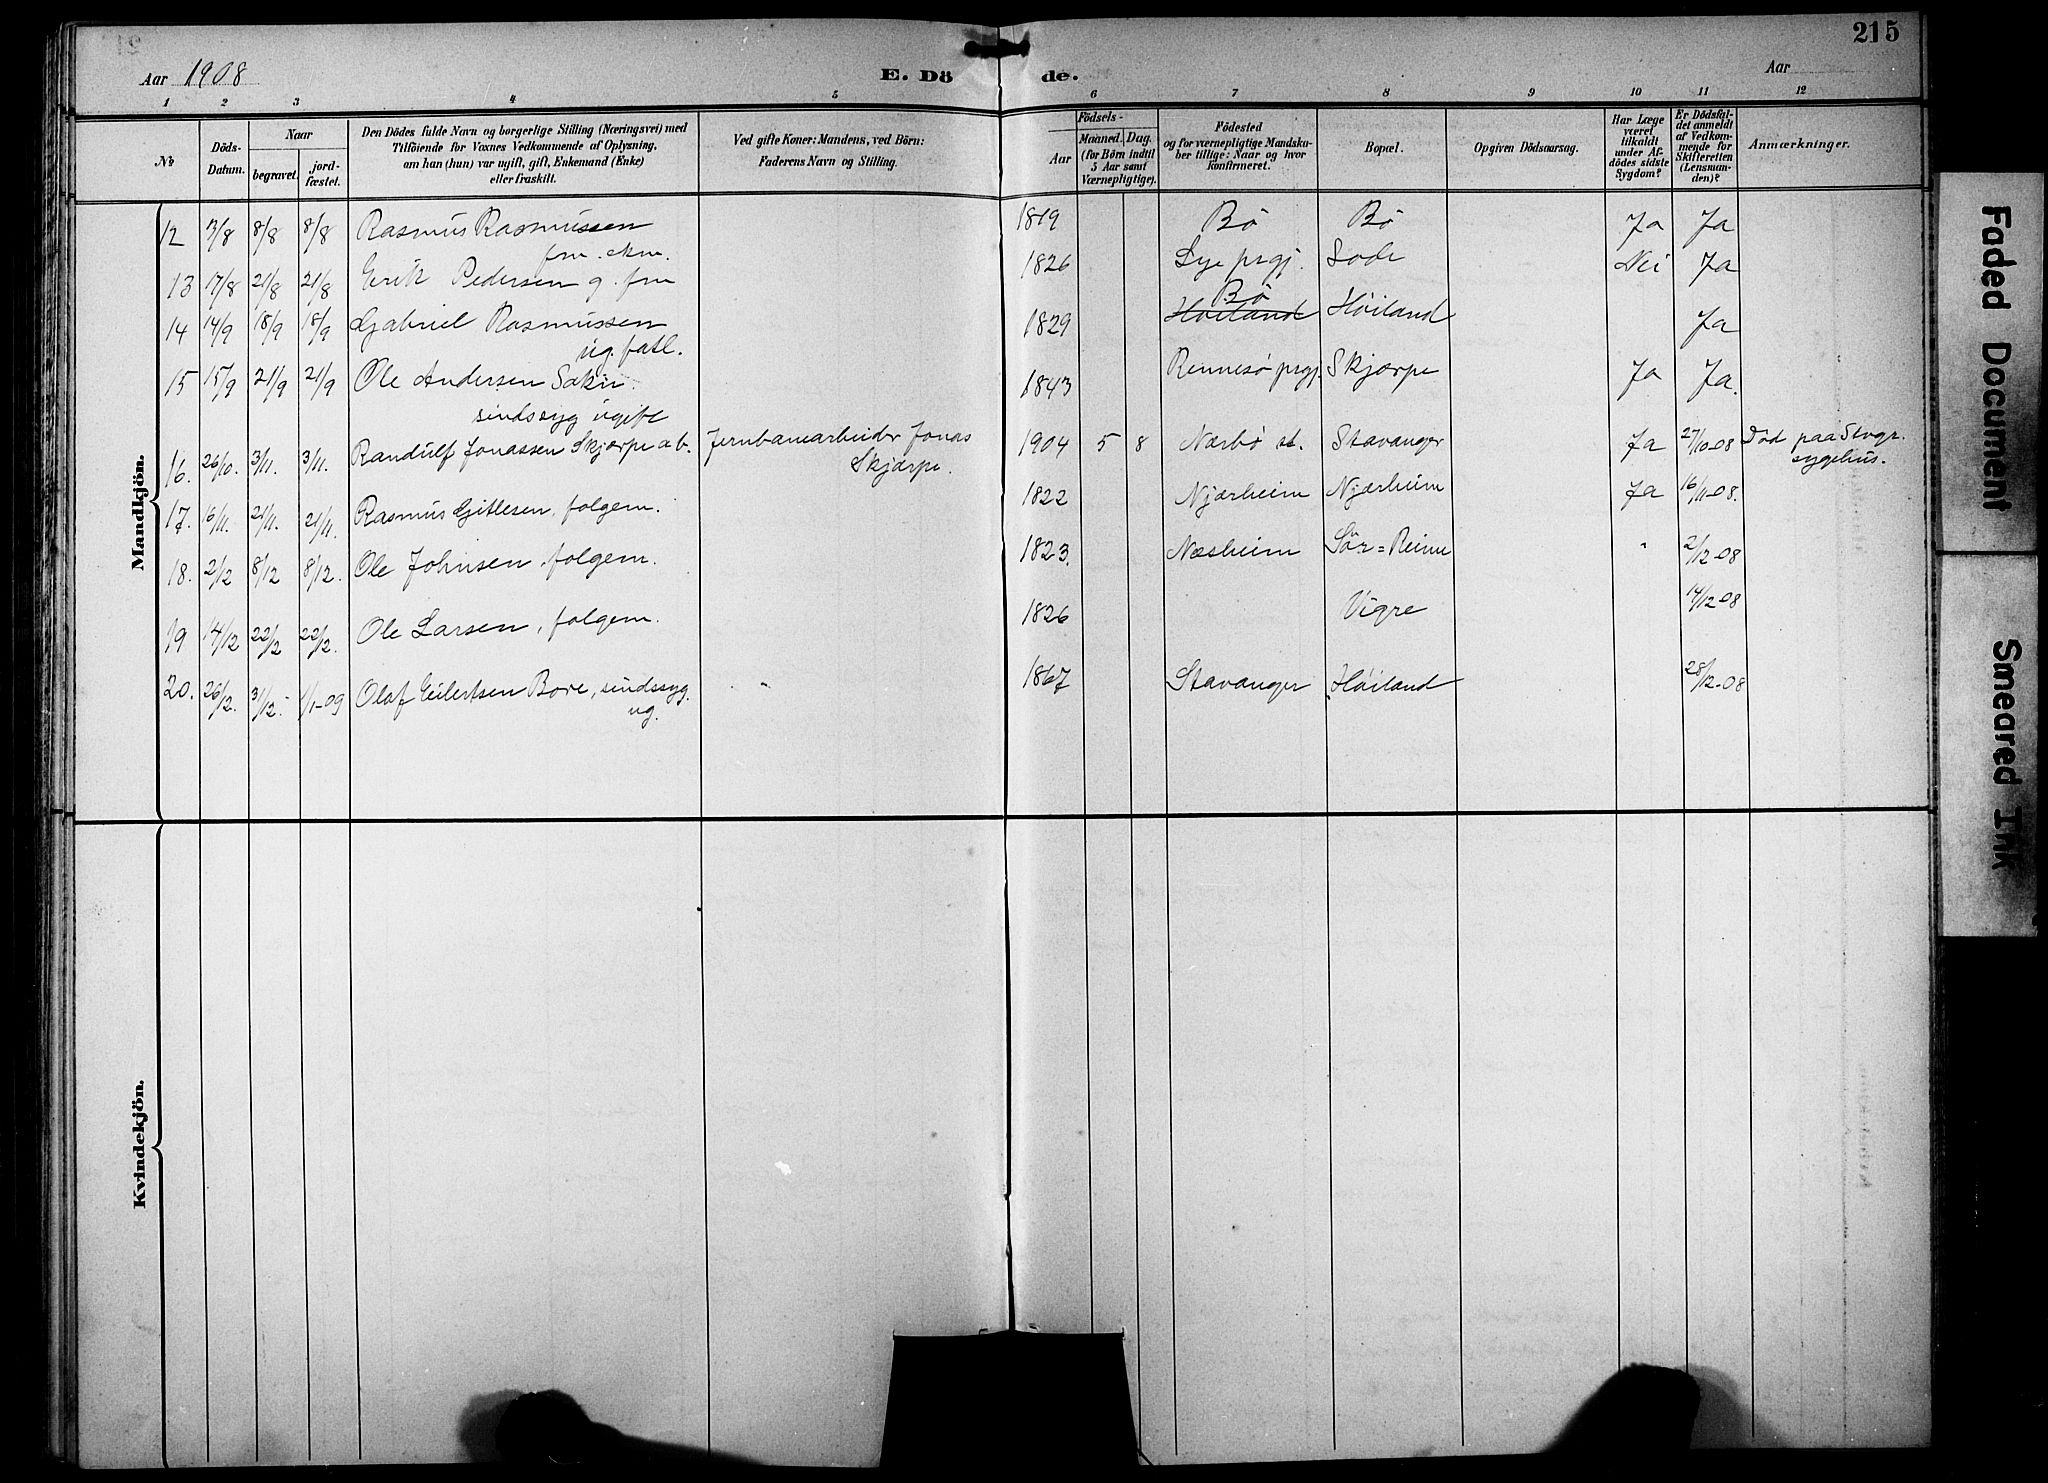 215
Aar 1908
E. Dö de.
Aar
1 2 3 4 5 6 7 8 9 10 11 12
No
Döds-Datum.
Naar
begravet.
jord-fæstet.
Den Dödes fulde Navn og borgerlige Stilling (Næringsvei) med
Tilföiende for Voxnes Vedkommende af Oplysning,
om han (hun) var ugift, gift, Enkemand (Enke)
eller fraskilt.
Ved gifte Koner: Mandens, ved Börn:
Faderens Navn og Stilling.
Födsels-
Aar
Maaned. Dag.
(for Börn indtil
5 Aar samt
Værnepligtige).
Födested
og for værnepligtige Mandska-
ber tillige: Naar og hvor
konfirmeret.
Bopæl.
Opgiven Dödsaarsag.
Har Læge
været
tilkaldt
under Af-
dödes sidste
Sygdom?
Er Dödsfal-
det anmeldt
af Vedkom-
mende for
Skifteretten
(Lensman-
den)?
Anmærkninger.
Mandkjön.
12 3/8 8/8 8/8 Rasmus Rasmussen 1819 Bö Bö Ja Ja
frm. ekm.
13 17/8 21/8 21/8 Erik Pedersen g. frm 1826 Lye prgj. Lode Nei Ja
14 14/9 18/9 18/9 Gabriel Rasmussen 1829 Bö Høiland Høiland Ja
ug. fatl.
15 15/9 21/9 21/9 Ole Andersen 1843 Rennesø prgj. Skjærpe Ja Ja.
sindssyg ugift
16. 26/10. 3/11. 3/11. Randulf Jonassen Skjærpe a.b. Jernbanearbeider Jonas 1904 5 8 Nærbø st. Stavanger Ja 27/10-08 Død paa Stvgr.
Skjærpe. sygehus.
17. 16/11. 21/11. 21/11. Rasmus Gitlesen, folgem. 1822 Njærheim Njærheim Ja 16/11-08.
18. 2/12 8/12 8/12. Ole Johnsen, folgem. 1823. Næsheim Sör=Reime " 2/12-08
19 14/12 22/12 22/12. Ole Larsen, folgem. 1826 Vigre 14/12-08
20. 26/12. 31/12. 1/1-09 Olaf Eilertsen Bore, sindssyg. " 1867 Stavanger Høiland 28/12-08
ug.
Kvindekjön.
Faded Document
Smeared Ink